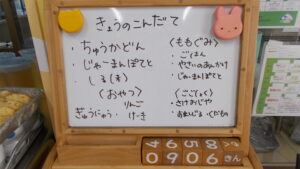 きょうのこんだて
・ちゅうかどん
・じゃーまんぽてと
しる(末)
〈おやつ〉
りんご
ぎゅうにゅう・けーき
〈ももぐみ〉
・ごはん
・やさいのあんかけ
・じゃーまんぽてと
〈ごごしょく〉
・さけおじや
・くだもの
0 9 0 6 きん